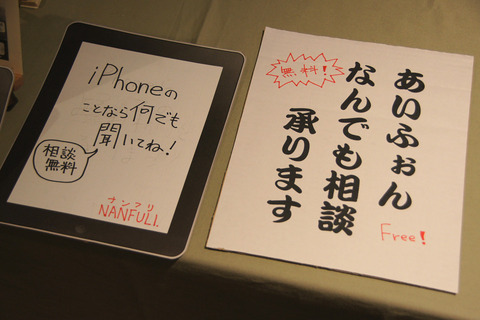 iPhoneの
ことなら何でも
聞いてね!
相談
無料
ナンフリ
NANFULI.
無料!
あいふぉん
なんでも相談
承ります
Free!